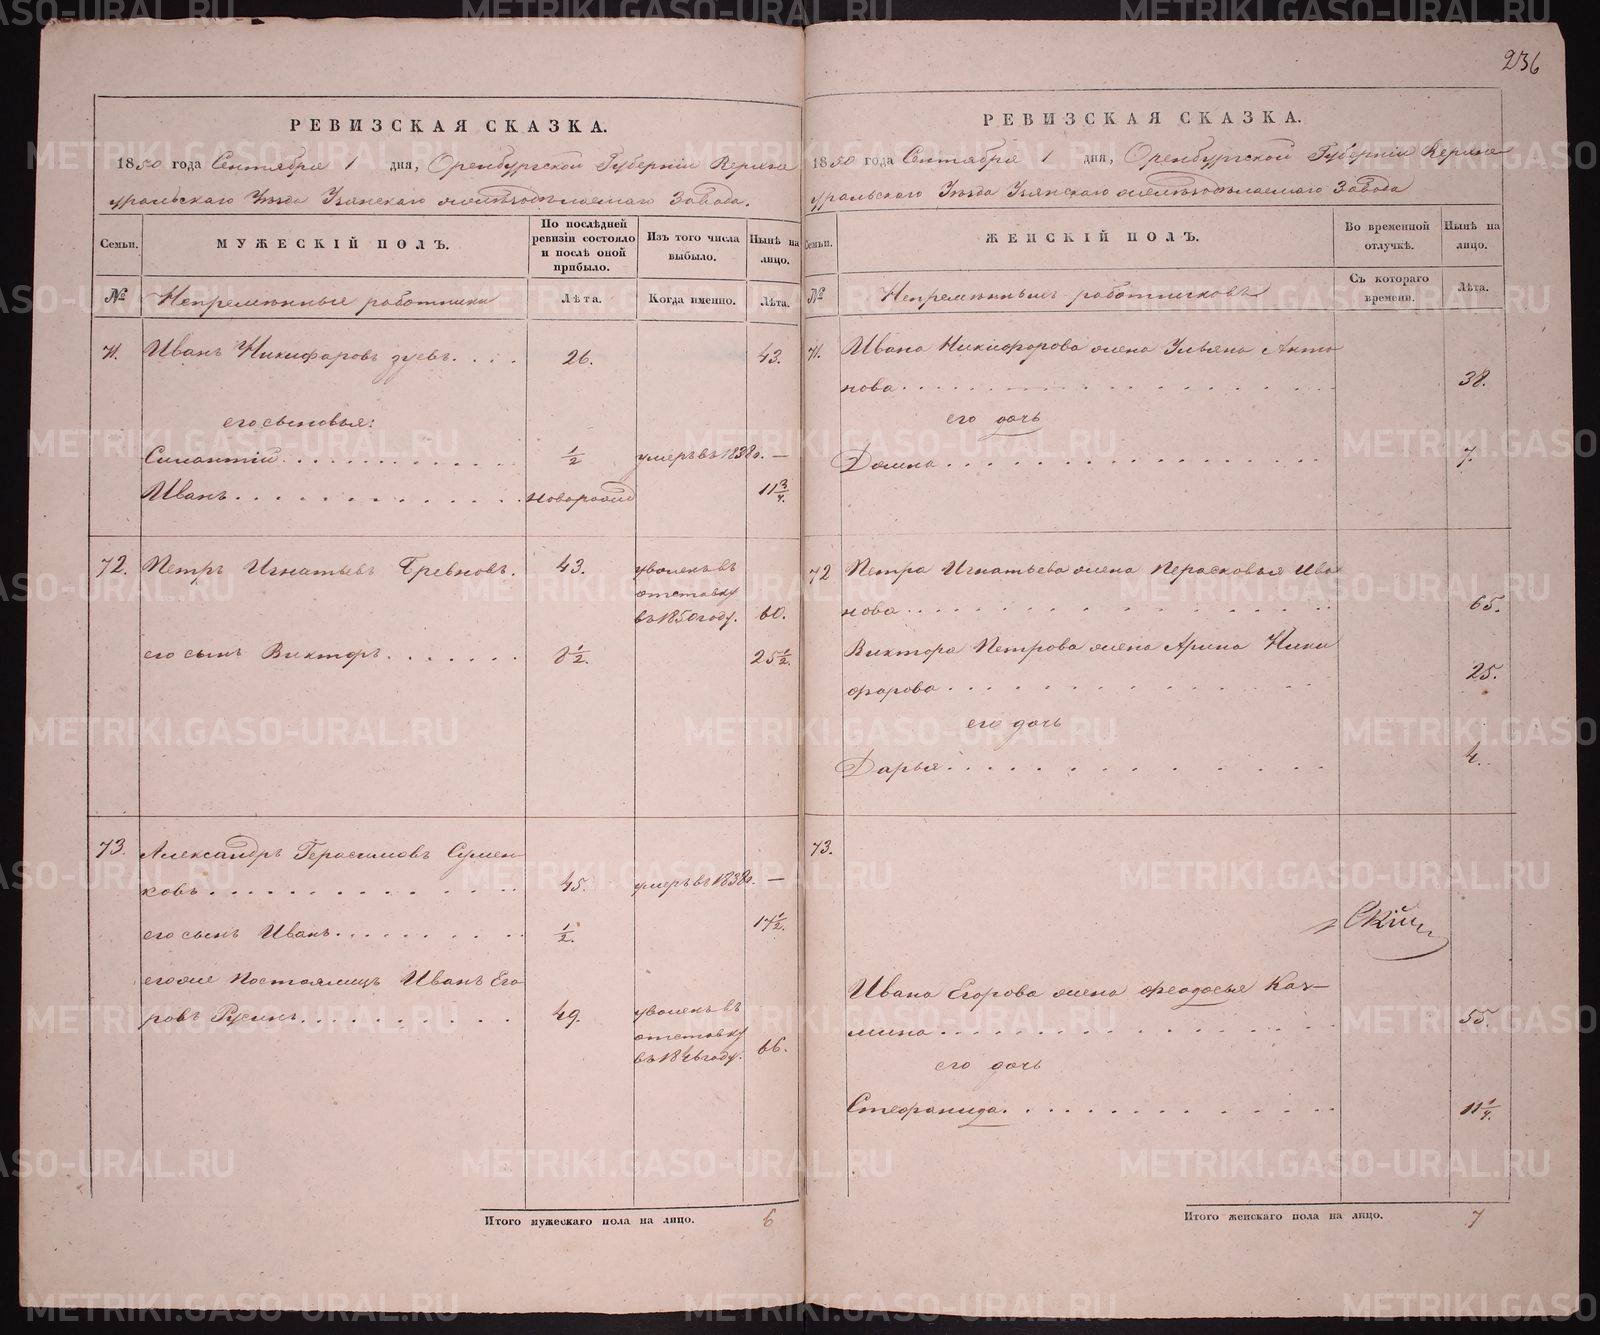 236
РЕВИЗСКАЯ СКАЗКА.
1850 года Сентября 1 дня, Оренбургской Губерніи Верхне
уральскаго Уѣзда Узянскаго желѣзодѣлаемаго Завода.
Семьи.
МУЖЕСКІЙ ПОЛЪ.
По послѣдней
ревизіи состояло
и послѣ оной
прибыло.
Изъ того числа
выбыло.
Нынѣ на
лицо.
№
Непремѣнные работники
Лѣта.
Когда именно.
Лѣта.
71. Иванъ Никифаровъ Зуевъ. 26. 43.
его сыновья:
½ умеръ въ 1838 г. —
Иванъ новорожд 11¾.
72. Петръ Игнатьевъ Гревновъ. 43. уволенъ въ
отставку
въ 1850 году. 60.
его сынъ Викторъ 8½. 25½.
73. Александръ Герасимовъ Сумен-
ковъ 45. умеръ въ 1838 г. —
его сынъ Иванъ ½. 17½.
егоже Постоялецъ Иванъ Его
ровъ Русинъ 49. уволенъ въ
отставку
въ 1846 году. 66.
Итого мужескаго пола на лицо. 6
РЕВИЗСКАЯ СКАЗКА.
1850 года Сентября 1 дня, Оренбургской Губерніи Верхне
уральскаго Уѣзда Узянскаго желѣзодѣлаемаго Завода
Семьи.
ЖЕНСКІЙ ПОЛЪ.
Во временной
отлучкѣ.
Нынѣ на
лицо.
№
Непремѣнныхъ работниковъ
Съ котораго
времени.
Лѣта.
71. Ивана Никифорова жена Ульяна Анто
нова 38.
его дочь
Домна 7.
72 Петра Игнатьева жена Парасковья Ива
нова 65.
Виктора Петрова жена Арина Ники
фарова 25.
его дочь
Дарья 4.
73.
Ивана Егорова жена Феодосья Каз-
мина 55.
его дочь
Стефанида 11¼.
Итого женскаго пола на лицо. 7
METRIKI.GASO-URAL.RU